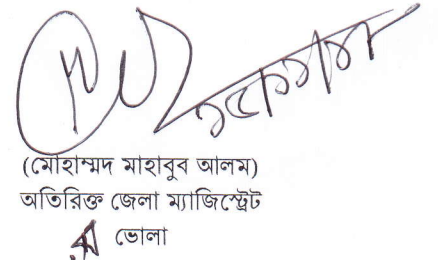 (মোহাম্মদ মাহাবুব আলম)
অতিরিক্ত জেলা ম্যাজিস্ট্রেট
ভোলা